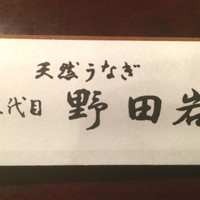 天然うなぎ
代目 野田岩